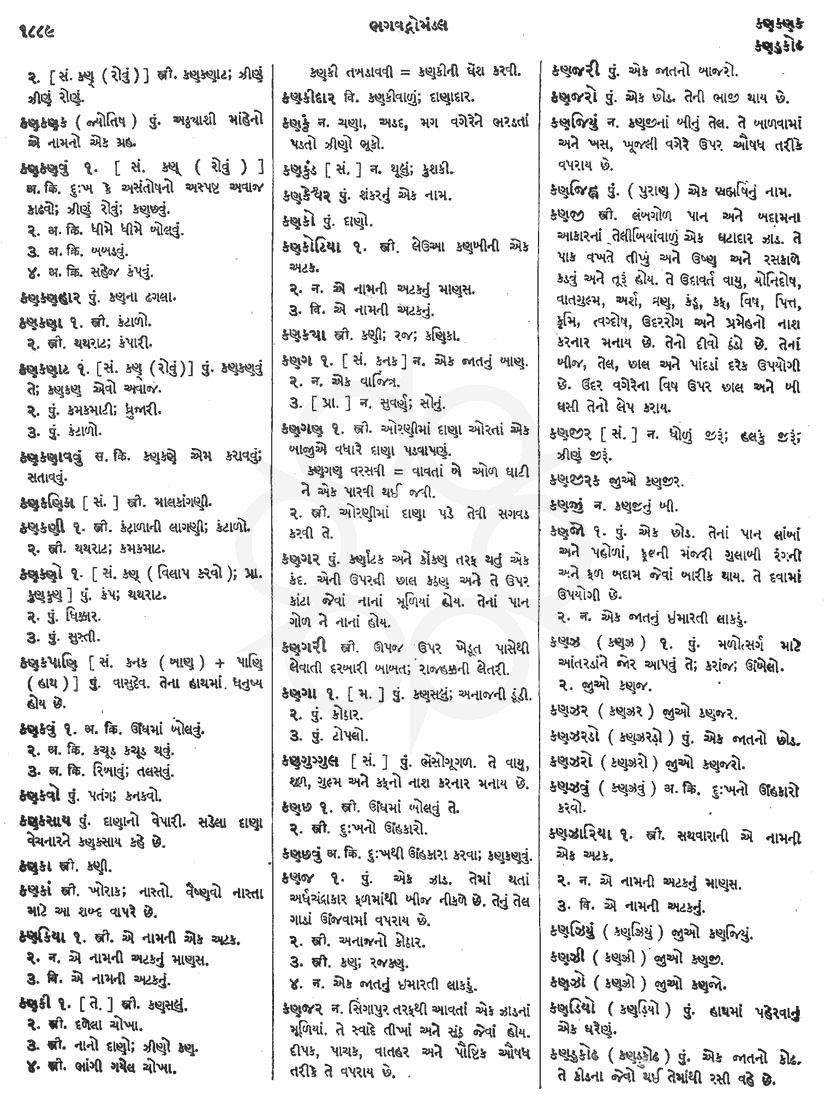 ૧૮૮૯
ભગવદ્ગોમંડલ
કણકણક
કણડુકોઢ
૨. [ સં. કણ્ ( રોવું ) ] સ્ત્રી. કણકણાટ; ઝીણું
ઝીણું રોણું.
કણકણક ( જ્યોતિષ ) પું. અઠ્ઠયાશી માંહેનો
એ નામનો એક ગ્રહ.
કણકણવું ૧. [ સં. કણ્ ( રોવું ) ]
અ. ક્રિ. દુઃખ કે અસંતોષનો અસ્પષ્ટ અવાજ
કાઢવો; ઝીણું રોવું; કણછવું.
૨. અ. ક્રિ. ધીમે ધીમે બોલવું.
૩. અ. ક્રિ. બબડવું.
૪. અ. ક્રિ. સહેજ કંપવું.
કણકણહાર પું. કણના ઢગલા.
કણકણા ૧. સ્ત્રી. કંટાળો.
૨. સ્ત્રી. થથરાટ; કંપારી.
કણકણાટ ૧. [ સં. કણ્ ( રોવું ) ] પું. કણકણવું
તે; કણકણ એવો અવાજ.
૨. પું. કમકમાટી; ધ્રુજારી.
૩. પું. કંટાળો.
કણકણાવવું સ. ક્રિ. કણકણે એમ કરાવવું;
સતાવવું.
કણકણિકા [ સં. ] સ્ત્રી. માલકાંગણી.
કણકણી ૧. સ્ત્રી. કંટાળાની લાગણી; કંટાળો.
૨. સ્ત્રી. થથરાટ; કમકમાટ.
કણકણો ૧. [ સં. કણ્ ( વિલાપ કરવો ); પ્રા.
કુણકુણ ] પું. કંપ; થથરાટ.
૨. પું. ધિક્કાર.
૩. પું. સુસ્તી.
કણકપાણિ [ સં. કનક ( બાણ ) + પાણિ
( હાથ ) ] પું. વાસુદેવ. તેના હાથમાં ધનુષ્ય
હોય છે.
કણકવું ૧. અ. ક્રિ. ઊંઘમાં બોલવું.
૨. અ. ક્રિ. કચૂડ કચૂડ થવું.
૩. અ. ક્રિ. રિબાવું; તલસવું.
કણકવો પું. પતંગ; કનકવો.
કણકસાય પું. દાણાનો વેપારી. સડેલા દાણા
વેચનારને કણકસાય કહે છે.
કણકા સ્ત્રી. કણી.
કણકાં સ્ત્રી. ખોરાક; નાસ્તો. વૈષ્ણવો નાસ્તા
માટે આ શબ્દ વાપરે છે.
કણકિયા ૧. સ્ત્રી. એ નામની એક અટક.
૨. ન. એ નામની અટકનું માણસ.
૩. વિ. એ નામની અટકનું.
કણકી ૧. [ તે. ] સ્ત્રી. કણસલું.
૨. સ્ત્રી. દળેલા ચોખા.
૩. સ્ત્રી. નાનો દાણો; ઝીણો કણ.
૪. સ્ત્રી. ભાંગી ગયેલ ચોખા.
કણકી તબડાવવી = કણકીની ઘેંશ કરવી.
કણકીદાર વિ. કણકીવાળું; દાણાદાર.
કણકું ન. ચણા, અડદ, મગ વગેરેને ભરડતાં
પડતો ઝીણો ભૂકો.
કણકુંડ [ સં. ] ન. થૂલું; કુશકી.
કણકેશ્વર પું. શંકરનું એક નામ.
કણકો પું. દાણો.
કણકોટિયા ૧. સ્ત્રી. લેઉઆ કણબીની એક
અટક.
૨. ન. એ નામની અટકનું માણસ.
૩. વિ. એ નામની અટકનું.
કણક્યા સ્ત્રી. કણી; રજ; કણિકા.
કણગ ૧. [ સં. કનક ] ન. એક જાતનું બાણ.
૨. ન. એક વાજિંત્ર.
૩. [ પ્રા. ] ન. સુવર્ણ; સોનું.
કણગણ ૧. સ્ત્રી. ઓરણીમાં દાણા ઓરતાં એક
બાજુએ વધારે દાણા પડવાપણું.
કણગણ વરસવી = વાવતાં બે ઓળ ઘાટી
ને એક પારવી થઈ જવી.
૨. સ્ત્રી. ઓરણીમાં દાણા પડે તેવી સગવડ
કરવી તે.
કણગર પું. કર્ણાટક અને કોંકણ તરફ થતું એક
કંદ. એની ઉપરની છાલ કઠણ અને તે ઉપર
કાંટા જેવાં નાનાં મૂળિયાં હોય. તેનાં પાન
ગોળ ને નાનાં હોય.
કણગરી સ્ત્રી. ઊપજ ઉપર ખેડૂત પાસેથી
લેવાતી દરબારી બાબત; રાજહકની લેતરી.
કણગા ૧. [ મ. ] પું. કણસલું; અનાજની ડૂંડી.
૨. પું. કોઠાર.
૩. પું. ટોપલો.
કણગુગ્ગુલ [ સં. ] પું. ભેંસોગૂગળ. તે વાયુ,
શૂળ, ગુલ્મ અને કફનો નાશ કરનાર મનાય છે.
કણછ ૧. સ્ત્રી. ઊંઘમાં બોલવું તે.
૨. સ્ત્રી. દુઃખનો ઊંહકારો.
કણછવું અ. ક્રિ. દુઃખથી ઊંહકારા કરવા; કણકણવું.
કણજ ૧. પું. એક ઝાડ. તેમાં થતાં
અર્ધચંદ્રાકાર ફળમાંથી બીજ નીકળે છે. તેનું તેલ
ગાડાં ઊંજવામાં વપરાય છે.
૨. સ્ત્રી. અનાજનો કોઠાર.
૩. સ્ત્રી. કણ; રજકણ.
૪. ન. એક જાતનું ઇમારતી લાકડું.
કણજર ન. સિંગાપુર તરફથી આવતાં એક ઝાડનાં
મૂળિયાં. તે સ્વાદે તીખાં અને સૂંઠ જેવાં હોય.
દીપક, પાચક, વાતહર અને પૌષ્ટિક ઔષધ
તરીકે તે વપરાય છે.
કણજરી પું. એક જાતનો બાજરો.
કણજરો પું. એક છોડ. તેની ભાજી થાય છે.
કણજિયું ન. કણજીનાં બીનું તેલ. તે બાળવામાં
અને ખસ, ખૂજલી વગેરે ઉપર ઔષધ તરીકે
વપરાય છે.
કણજિહ્વ પું. ( પુરાણ ) એક બ્રહ્મર્ષિનું નામ.
કણજી સ્ત્રી. લંબગોળ પાન અને બદામના
આકારનાં તેલીબિયાંવાળું એક ઘટાદાર ઝાડ. તે
પાક વખતે તીખું અને ઉષ્ણ અને રસકાળે
કડવું અને તૂરૂં હોય. તે ઉદાવર્ત વાયુ, યોનિદોષ,
વાતગુલ્મ, અર્શ, વ્રણ, કંડુ, કફ, વિષ, પિત્ત,
કૃમિ, ત્વગ્દોષ, ઉદરરોગ અને પ્રમેહનો નાશ
કરનાર મનાય છે. તેનો દીવો ઠંડો છે. તેનાં
બીજ, તેલ, છાલ અને પાંદડાં દરેક ઉપયોગી
છે. ઉંદર વગેરેના વિષ ઉપર છાલ અને બી
ઘસી તેનો લેપ કરાય.
કણજીર [ સં. ] ન. ધોળું જીરૂં; હલકું જીરૂં;
ઝીણું જીરૂં.
કણજીરક જુઓ કણજીર.
કણજું ન. કણજીનું બી.
કણજો ૧. પું. એક છોડ. તેનાં પાન લાંબાં
અને પહોળાં, ફૂલની મંજરી ગુલાબી રંગની
અને ફળ બદામ જેવાં બારીક થાય. તે દવામાં
ઉપયોગી છે.
૨. ન. એક જાતનું ઇમારતી લાકડું.
કણઝ ( કણઝ ) ૧. પું. મળોત્સર્ગ માટે
આંતરડાંને જોર આપવું તે; કરાંજ; ઊંખેલો.
૨. જુઓ કણજ.
કણઝર ( કણઝર ) જુઓ કણજર.
કણઝરડો ( કણઝરડ઼ો ) પું. એક જાતનો છોડ.
કણઝરો ( કણઝરો ) જુઓ કણજરો.
કણઝવું ( કણઝવું ) અ. ક્રિ. દુઃખનો ઊંહકારો
કરવો.
કણઝારિયા ૧. સ્ત્રી. સથવારાની એ નામની
એક અટક.
૨. ન. એ નામની અટકનું માણસ.
૩. વિ. એ નામની અટકનું.
કણઝિયું ( કણઝિયું ) જુઓ કણજિયું.
કણઝી ( કણઝી ) જુઓ કણજી.
કણઝો ( કણઝો ) જુઓ કણજો.
કણડિયો ( કણડ઼િયો ) પું. હાથમાં પહેરવાનું
એક ઘરેણું.
કણડુકોઢ ( કણડ઼ુકોઢ ) પું. એક જાતનો કોઢ.
તે કીડના જેવો થઈ તેમાંથી રસી વહે છે.